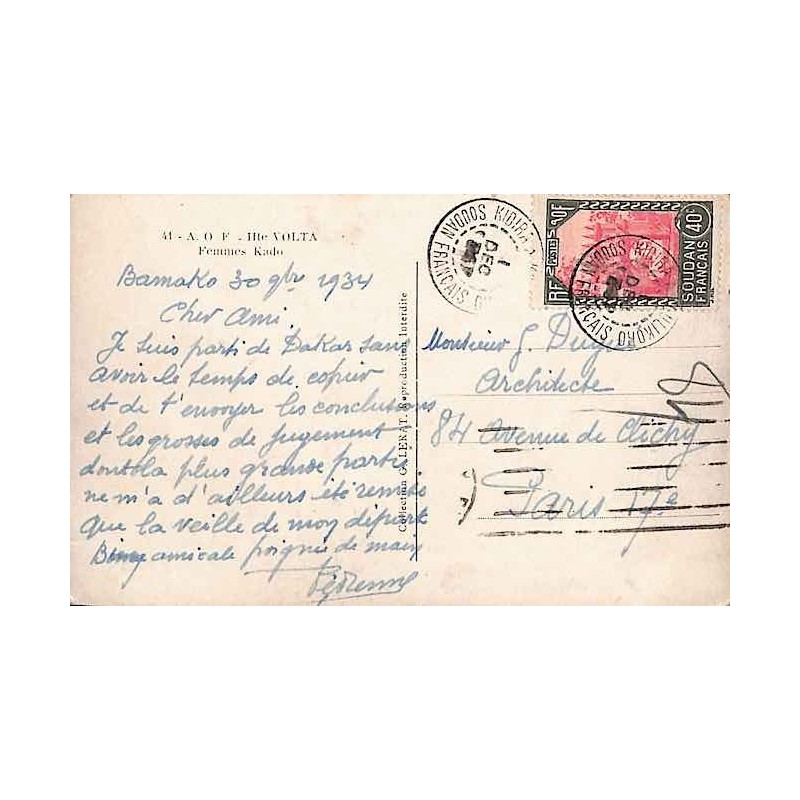 41 - A. O F - Hte VOLTA
Femmes Kado
Bamako 30 9bre 1934
Cher Ami.
Je suis parti de Dakar sans
avoir le temps de copier
et de t'envoyer les conclusions
et les grosses de jugement
dont la plus grande partie
ne m'a d'ailleurs été remise
que la veille de mon départ
Bien amicale poignée de main
Collection G. LERAT. Reproduction Interdite
SOUDAN FRANÇAIS
1
DEC
KIDIRA
RF
POSTES
40c
SOUDAN
FRANÇAIS
SOUDAN FRANÇAIS
KIDIRA
Monsieur G.
Architecte
84 Avenue de Clichy
Paris 17e
48